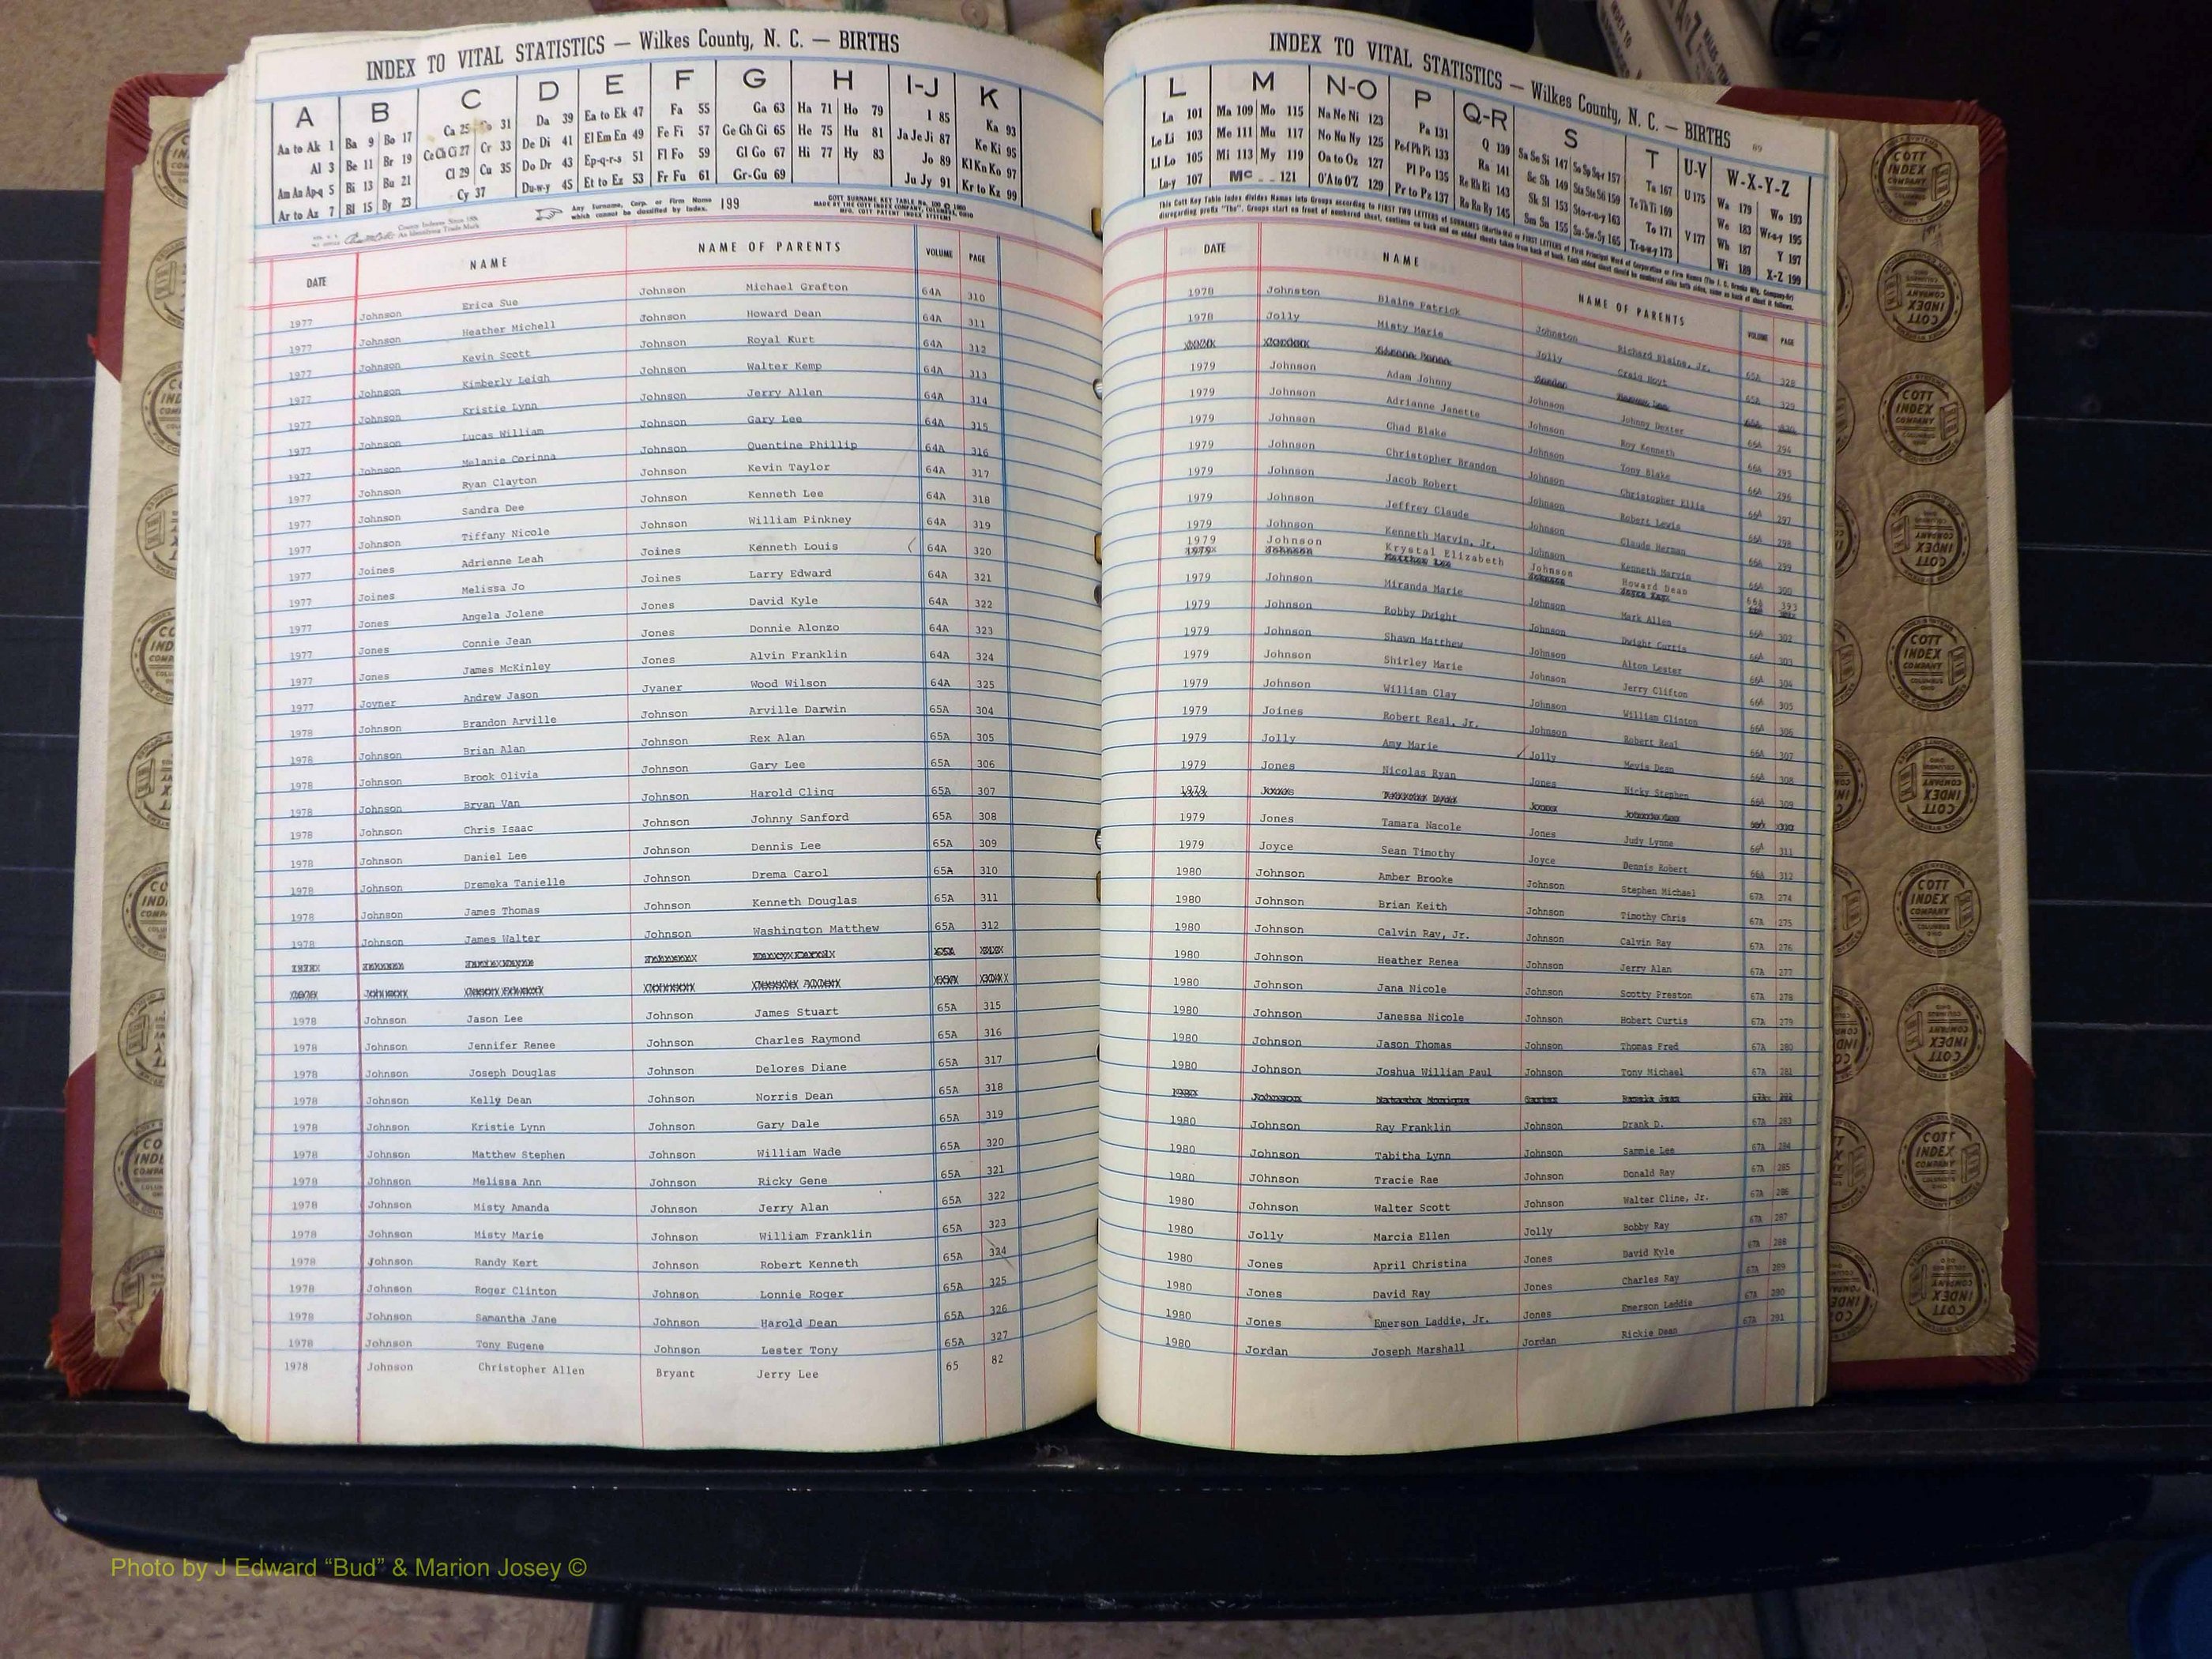 INDEX TO VITAL STATISTICS — Wilkes County, N. C. — BIRTHS
A B C D E F G H I-J K
Aa to Ak 1 Ba 9 Bo 17 Ca 25 Co 31 Da 39 Ea to Ek 47 Fa 55 Ga 63 Ha 71 Ho 79 I 85 Ka 93
Al 3 Be 11 Br 19 Ce Ch Ci 27 Cr 33 De Di 41 El Em En 49 Fe Fi 57 Ge Gh Gi 65 He 75 Hu 81 Ja Je Ji 87 Ke Ki 95
Am An Ap-q 5 Bi 13 Bu 21 Cl 29 Cu 35 Do Dr 43 Ep-q-r-s 51 Fl Fo 59 Gl Go 67 Hi 77 Hy 83 Jo 89 Kl Kn Ko 97
Ar to Az 7 Bl 15 By 23 Cy 37 Du-w-y 45 Et to Ez 53 Fr Fu 61 Gr-Gu 69 Ju Jy 91 Kr to Kz 99
Any Surname, Corp. or Firm Name which cannot be classified by Index. 199
DATE NAME NAME OF PARENTS VOLUME PAGE
1977 Johnson Erica Sue Johnson Michael Grafton 64A 310
1977 Johnson Heather Michell Johnson Howard Dean 64A 311
1977 Johnson Kevin Scott Johnson Royal Kurt 64A 312
1977 Johnson Kimberly Leigh Johnson Walter Kemp 64A 313
1977 Johnson Kristie Lynn Johnson Jerry Allen 64A 314
1977 Johnson Lucas William Johnson Gary Lee 64A 315
1977 Johnson Melanie Corinna Johnson Quentine Phillip 64A 316
1977 Johnson Ryan Clayton Johnson Kevin Taylor 64A 317
1977 Johnson Sandra Dee Johnson Kenneth Lee 64A 318
1977 Johnson Tiffany Nicole Johnson William Pinkney 64A 319
1977 Joines Adrienne Leah Joines Kenneth Louis 64A 320
1977 Joines Melissa Jo Joines Larry Edward 64A 321
1977 Jones Angela Jolene Jones David Kyle 64A 322
1977 Jones Connie Jean Jones Donnie Alonzo 64A 323
1977 Jones James McKinley Jones Alvin Franklin 64A 324
1977 Joyner Andrew Jason Jyaner Wood Wilson 64A 325
1978 Johnson Brandon Arville Johnson Arville Darwin 65A 304
1978 Johnson Brian Alan Johnson Rex Alan 65A 305
1978 Johnson Brook Olivia Johnson Gary Lee 65A 306
1978 Johnson Bryan Van Johnson Harold Cling 65A 307
1978 Johnson Chris Isaac Johnson Johnny Sanford 65A 308
1978 Johnson Daniel Lee Johnson Dennis Lee 65A 309
1978 Johnson Dremeka Tanielle Johnson Drema Carol 65A 310
1978 Johnson James Thomas Johnson Kenneth Douglas 65A 311
1978 Johnson James Walter Johnson Washington Matthew 65A 312
1978 Johnson Jason Lee Johnson James Stuart 65A 315
1978 Johnson Jennifer Renee Johnson Charles Raymond 65A 316
1978 Johnson Joseph Douglas Johnson Delores Diane 65A 317
1978 Johnson Kelly Dean Johnson Norris Dean 65A 318
1978 Johnson Kristie Lynn Johnson Gary Dale 65A 319
1978 Johnson Matthew Stephen Johnson William Wade 65A 320
1978 Johnson Melissa Ann Johnson Ricky Gene 65A 321
1978 Johnson Misty Amanda Johnson Jerry Alan 65A 322
1978 Johnson Misty Marie Johnson William Franklin 65A 323
1978 Johnson Randy Kert Johnson Robert Kenneth 65A 324
1978 Johnson Roger Clinton Johnson Lonnie Roger 65A 325
1978 Johnson Samantha Jane Johnson Harold Dean 65A 326
1978 Johnson Tony Eugene Johnson Lester Tony 65A 327
1978 Johnson Christopher Allen Bryant Jerry Lee 65 82
INDEX TO VITAL STATISTICS — Wilkes County, N. C. — BIRTHS
69
L M N-O P Q-R S T U-V W-X-Y-Z
La 101 Ma 109 Mo 115 Na Ne Ni 123 Pa 131 Q 139 Sa Se Si 147 So Sp Sq-r 157 Ta 167 U 175 Wa 179 Wo 193
Le Li 103 Me 111 Mu 117 No Nu Ny 125 Pe-f Ph Pi 133 Ra 141 Sc Sh 149 Sta Ste Sti 159 Te Th Ti 169 We 183 Wr-u-y 195
Ll Lo 105 Mi 113 My 119 Oa to Oz 127 Pl Po 135 Re Rh Ri 143 Sk Sl 153 Sto-r-u-y 163 To 171 V 177 Wh 187 Y 197
Lu-y 107 Mc 121 O'A to O'Z 129 Pr to Px 137 Ro Ru Ry 145 Sm Sn 155 Su-Sw-Sy 165 Tr-u-w-y 173 Wi 189 X-Z 199
DATE NAME NAME OF PARENTS VOLUME PAGE
1978 Johnston Blaine Patrick Johnston Richard Blaine, Jr. 65A 328
1978 Jolly Misty Marie Jolly Craig Hoyt 65A 329
1979 Johnson Adam Johnny Johnson Johnny Dexter 66A 294
1979 Johnson Adrianne Janette Johnson Roy Kenneth 66A 295
1979 Johnson Chad Blake Johnson Tony Blake 66A 296
1979 Johnson Christopher Brandon Johnson Christopher Ellis 66A 297
1979 Johnson Jacob Robert Johnson Robert Lewis 66A 298
1979 Johnson Jeffrey Claude Johnson Claude Herman 66A 299
1979 Johnson Kenneth Marvin, Jr. Johnson Kenneth Marvin 66A 300
1979 Johnson Krystal Elizabeth Johnson Howard Dean 66A 393
1979 Johnson Miranda Marie Johnson Mark Allen 66A 302
1979 Johnson Robby Dwight Johnson Dwight Curtis 66A 303
1979 Johnson Shawn Matthew Johnson Alton Lester 66A 304
1979 Johnson Shirley Marie Johnson Jerry Clifton 66A 305
1979 Johnson William Clay Johnson William Clinton 66A 306
1979 Joines Robert Real, Jr. Johnson Robert Real 66A 307
1979 Jolly Amy Marie Jolly Mevis Dean 66A 308
1979 Jones Nicolas Ryan Jones Nicky Stephen 66A 309
1979 Jones Tamara Nacole Jones Judy Lynne 66A 311
1979 Joyce Sean Timothy Joyce Dennis Robert 66A 312
1980 Johnson Amber Brooke Johnson Stephen Michael 67A 274
1980 Johnson Brian Keith Johnson Timothy Chris 67A 275
1980 Johnson Calvin Ray, Jr. Johnson Calvin Ray 67A 276
1980 Johnson Heather Renea Johnson Jerry Alan 67A 277
1980 Johnson Jana Nicole Johnson Scotty Preston 67A 278
1980 Johnson Janessa Nicole Johnson Hobert Curtis 67A 279
1980 Johnson Jason Thomas Johnson Thomas Fred 67A 280
1980 Johnson Joshua William Paul Johnson Tony Michael 67A 281
1980 Johnson Ray Franklin Johnson Drank D. 67A 283
1980 Johnson Tabitha Lynn Johnson Sammie Lee 67A 284
1980 JOhnson Tracie Rae Johnson Donald Ray 67A 285
1980 Johnson Walter Scott Johnson Walter Cline, Jr. 67A 286
1980 Jolly Marcia Ellen Jolly Bobby Ray 67A 287
1980 Jones April Christina Jones David Kyle 67A 288
1980 Jones David Ray Jones Charles Ray 67A 289
1980 Jones Emerson Laddie, Jr. Jones Emerson Laddie 67A 290
1980 Jordan Joseph Marshall Jordan Rickie Dean 67A 291
COTT INDEX COMPANY
Photo by J Edward “Bud” & Marion Josey ©